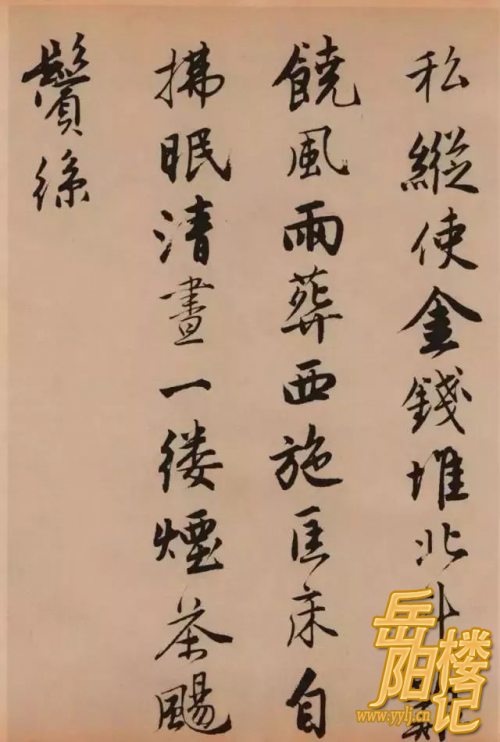 私縱使金錢堆北斗難
饒風雨葬西施匡床自
拂眠清晝一縷煙茶颺
鬢絲
岳阳楼记
www.yylj.cn